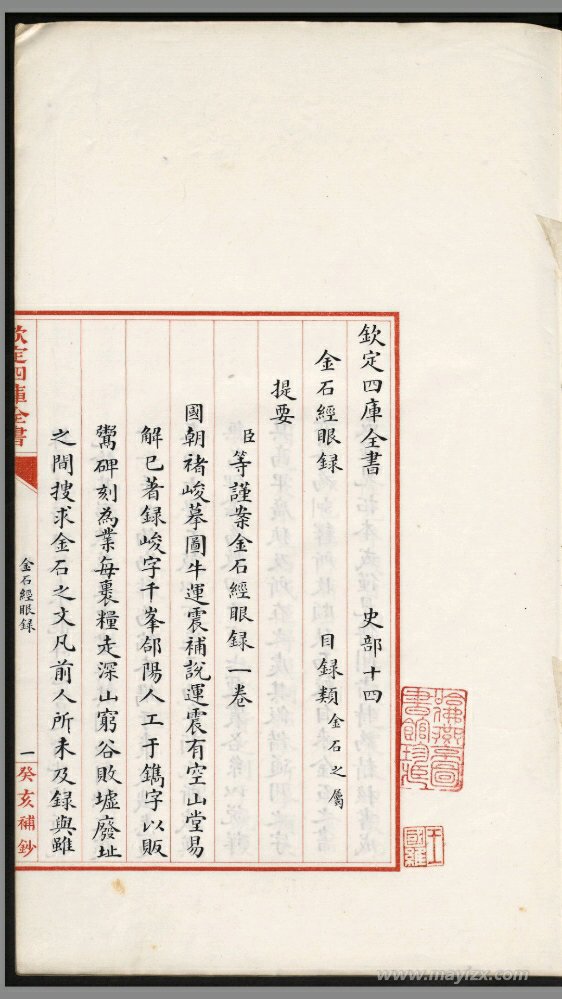 欽定四庫全書 史部十四
金石經眼録 目録類金石之屬
提要
臣等謹案金石經眼録一卷
國朝褚峻摹圖牛運震補說運震有空山堂易
解已著録峻字千峯郃陽人工于鐫字以販
鬻碑刻為業每裹糧走深山窮谷敗墟廢址
之間搜求金石之文凡前人所未及録與雖
欽定四庫全書
金石經眼録
一癸亥補鈔
www.mayizx.com